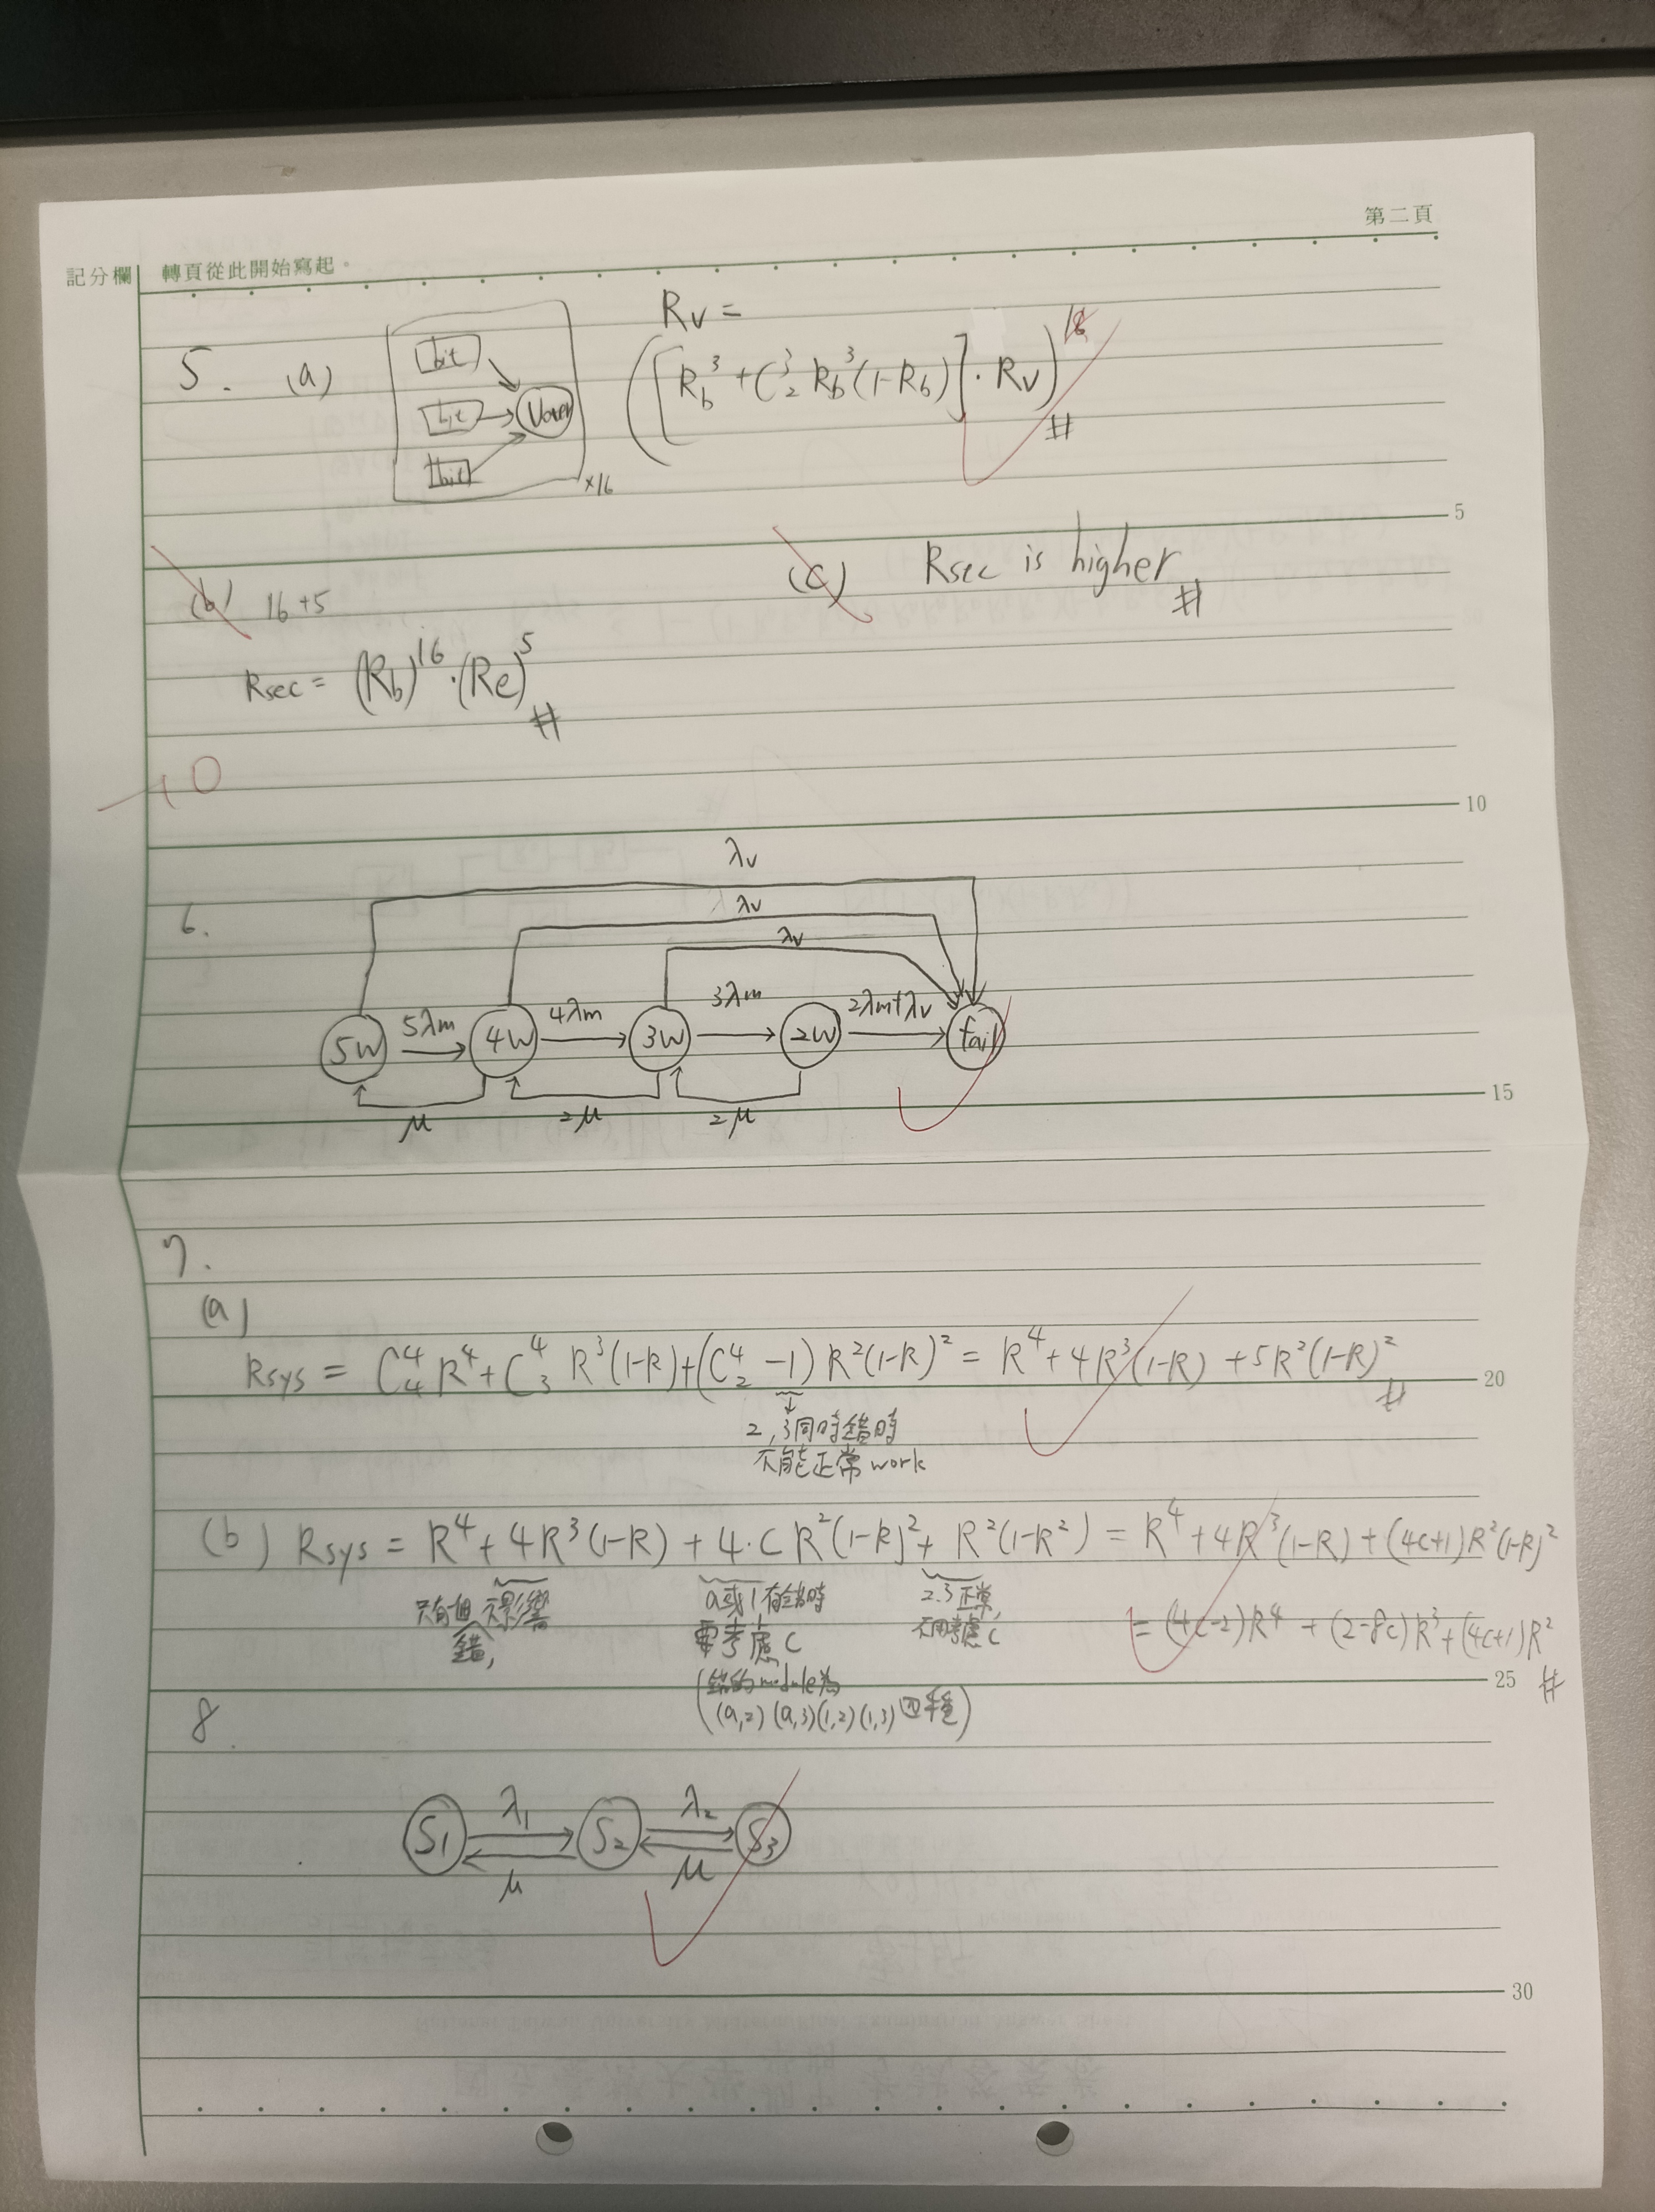 第二頁
記分欄 轉頁從此開始寫起。
5. (a) 1bit 1bit 1bit Voter ×16
Rv =
([Rb³ + C³₂ Rb³(1-Rb)]·Rv)¹⁶ #
5
(b) 16+5
Rsec = (Rb)¹⁶·(Re)⁵ #
(c) Rsec is higher #
+0
10
6.
λv
λv
λv
5W 5λm 4W 4λm 3W 3λm 2W 2λm+λv fail
μ 2μ 2μ
15
7.
(a)
Rsys = C⁴₄R⁴ + C⁴₃ R³(1-R) + (C⁴₂ -1) R²(1-R)² = R⁴ + 4R³(1-R) + 5R²(1-R)² #
20
2,3同時錯時
不能正常work
(b) Rsys = R⁴ + 4R³(1-R) + 4·C R²(1-R)² + R²(1-R²) = R⁴ + 4R³(1-R) + (4c+1)R²(1-R)²
= (4c-2)R⁴ + (2-8c)R³ + (4c+1)R² #
只有1個錯,不影響
a或1有錯時
要考慮C
(錯的module為
(a,2)(a,3)(1,2)(1,3)四種)
2.3正常,
不用考慮C
25
8.
S1 λ1 S2 λ2 S3
μ μ
30